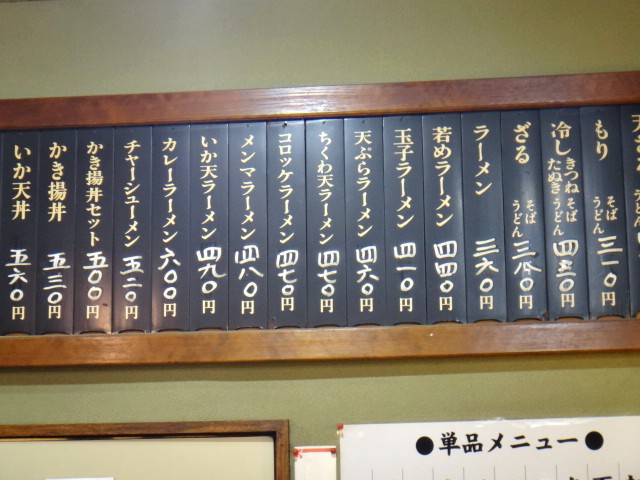 もり そば うどん 三一〇円
冷し きつね たぬき そば うどん 四五〇円
ざる そば うどん 三八〇円
ラーメン 三六〇円
若めラーメン 四四〇円
玉子ラーメン 四一〇円
天ぷらラーメン 四六〇円
ちくわ天ラーメン 四七〇円
コロッケラーメン 四七〇円
メンマラーメン 四八〇円
いか天ラーメン 四九〇円
カレーラーメン 六〇〇円
チャーシューメン 五二〇円
かき揚丼セット 五〇〇円
かき揚丼 五三〇円
いか天丼 五六〇円
●単品メニュー●